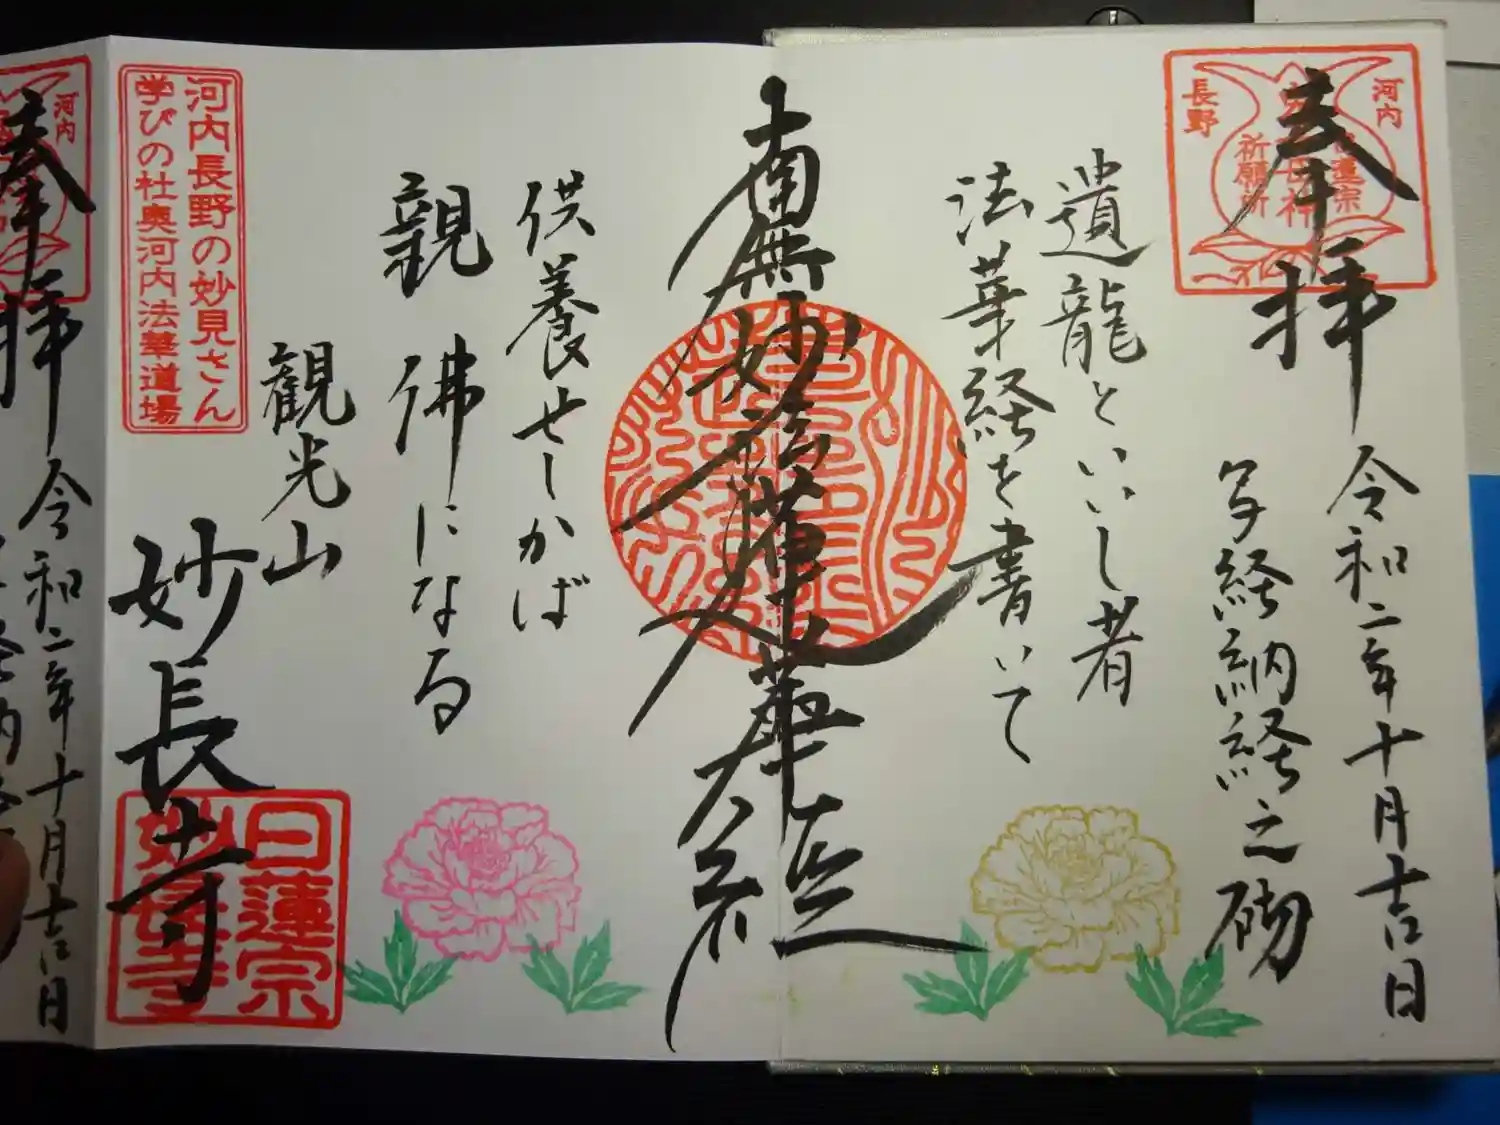 奉拝
河内
長野
祈願所
令和二年十月吉日
写経納経之砌
遺龍といいし者
法華経を書いて
南無妙法蓮華経
供養せしかば
親佛になる
観光山
妙長寺
河内長野の妙見さん
学びの杜奥河内法華道場
日蓮宗
妙長寺
河内
奉拝
令和二年十月吉日